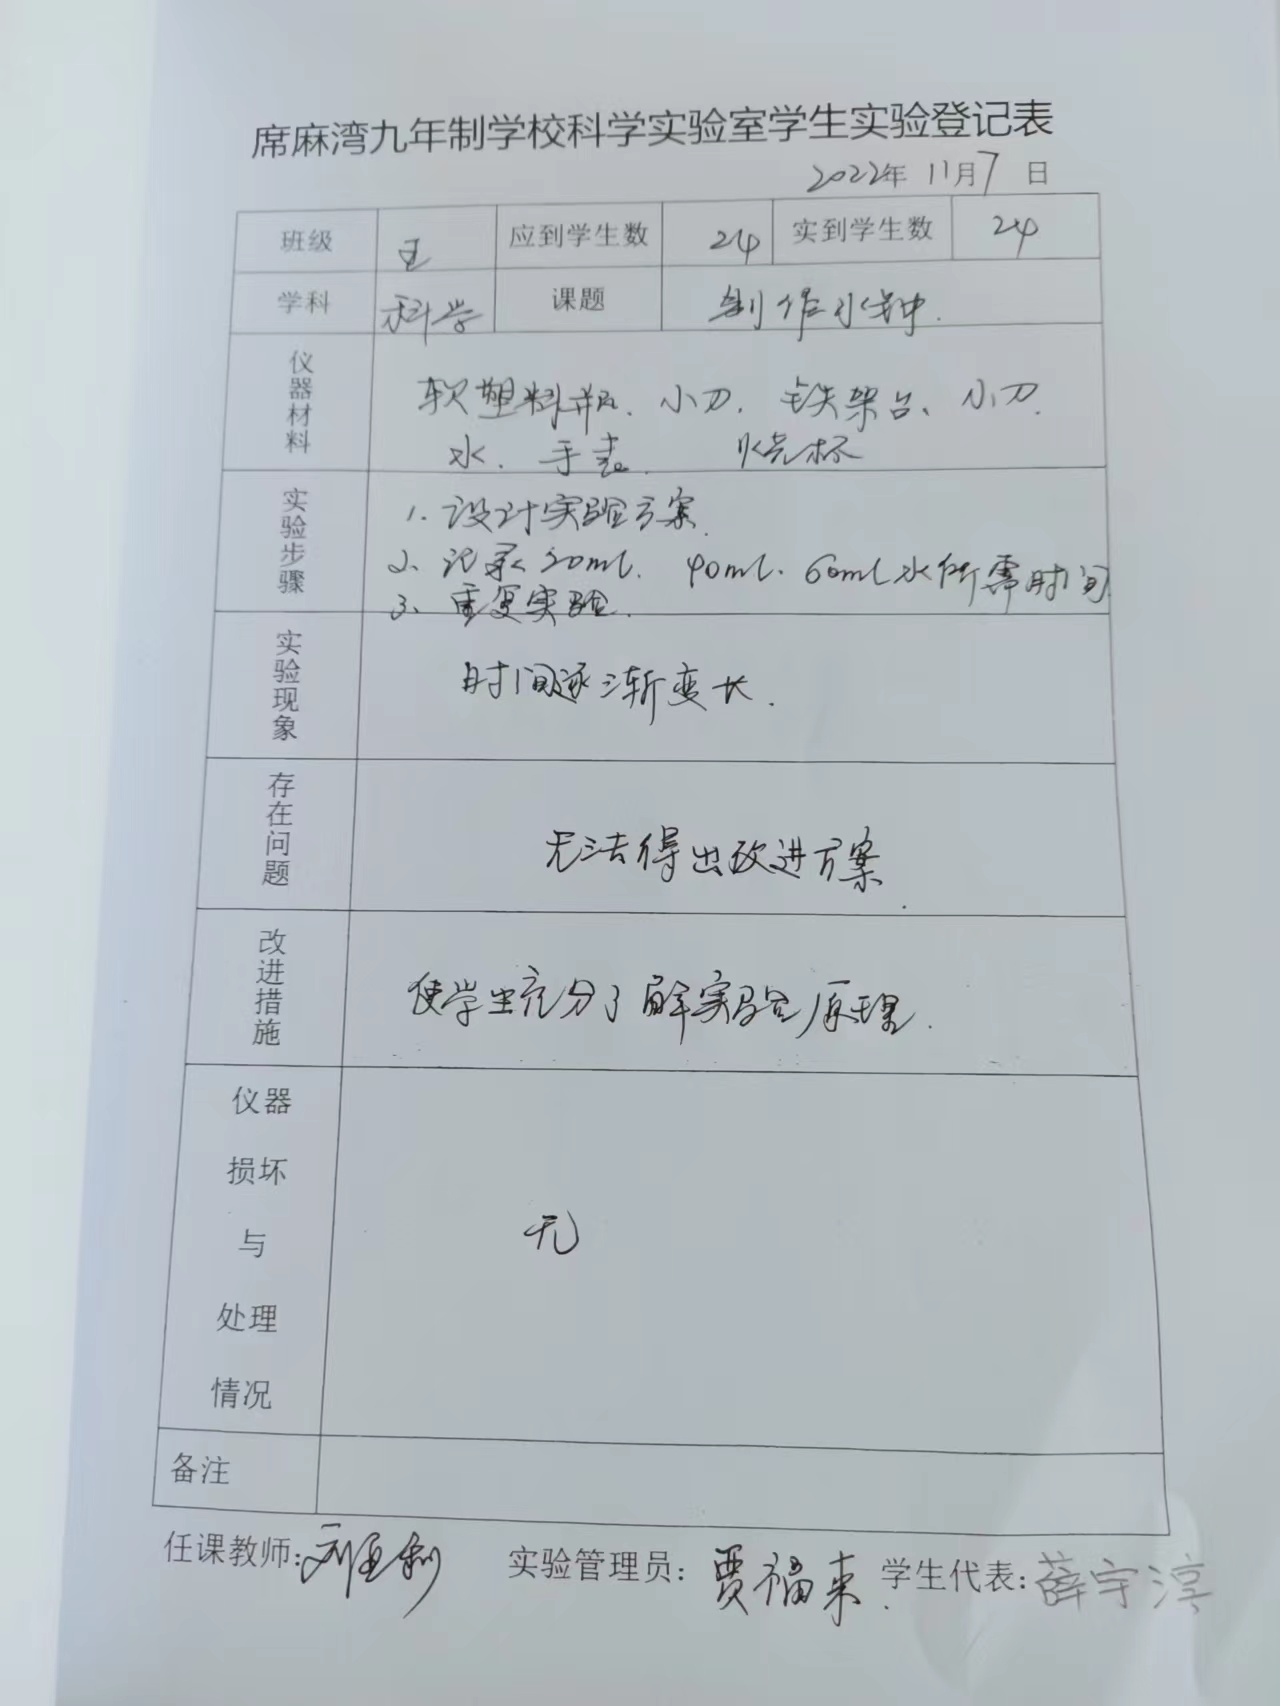 席麻湾九年制学校科学实验室学生实验登记表
2022年 11月7 日
班级 五 应到学生数 24 实到学生数 24
学科 科学 课题 制作水钟.
仪器材料 软塑料瓶、小刀、铁架台、小刀.
水、手表、 烧杯
实验步骤 1、设计实验方案.
2、记录20ml、40ml、60ml水所需时间.
3、重复实验.
实验现象 时间逐渐变长.
存在问题 无法得出改进方案.
改进措施 使学生充分了解实验原理.
仪器
损坏
与 无
处理
情况
备注
任课教师: 实验管理员: 贾福来. 学生代表: 薛宇淳